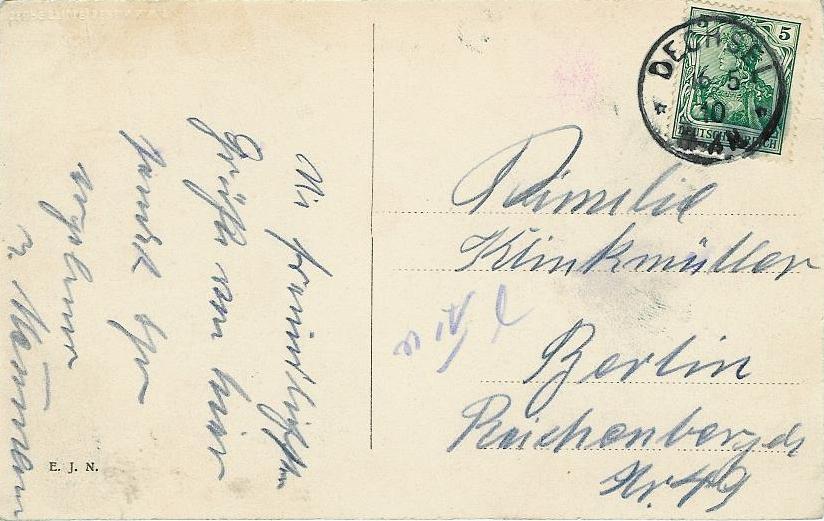 Die freundlichsten
Grüße von hier
sendet Ihr
ergebener
E. J. N.
5
DEUTSCHES REICH
DECHSEL
6 5
10
Familie
Klinkmüller
Berlin
Reichenberger
Nr. 49